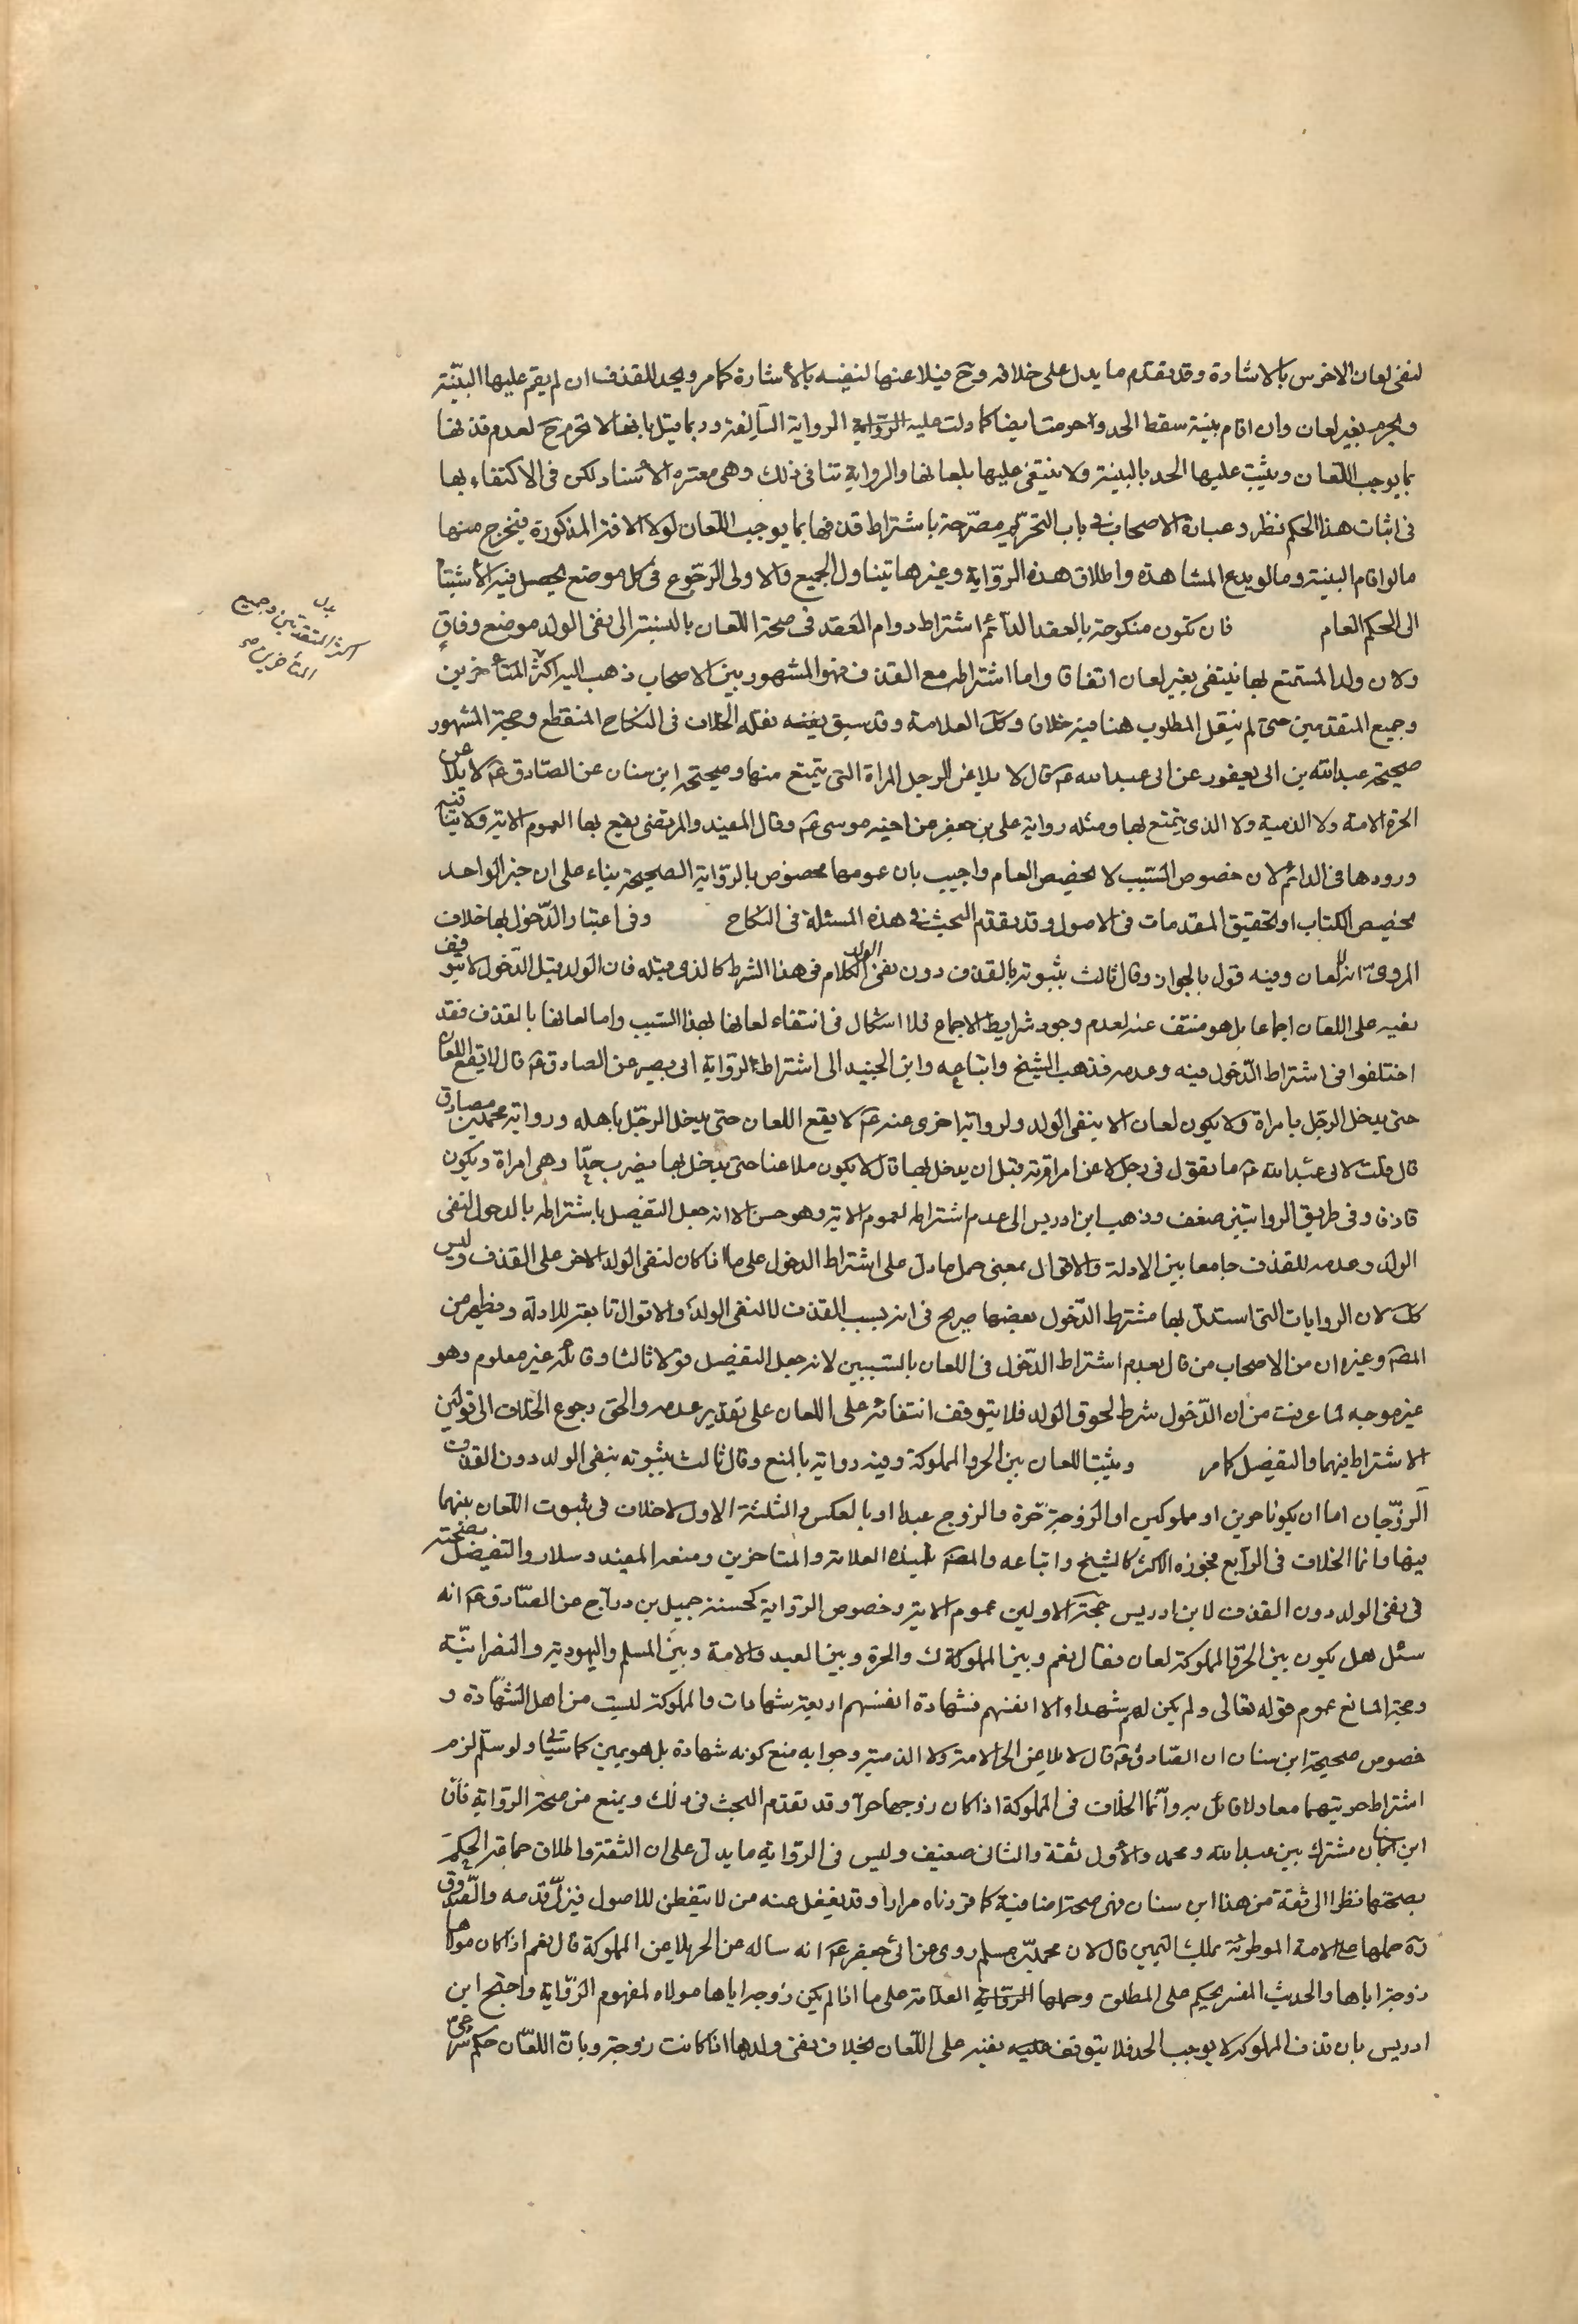 لنفى لعان الاخرس بالاشارة وقد تقدم ما يدل على خلافه وح فيلاعنها لنفيه بالأشارة كما مر ويحد للقذف ان لم يقم عليها البينة
ويحرم بغير لعان وان اقام بينة سقط الحد وحرمت ايضا كما دلت عليه الرواية الرواية السالفة وربما قيل بانها لا تحرم ح لعدم قذفها
بما يوجب اللعان ويثبت عليها الحد بالبينة ولا ينتفى عليها بلعانها والرواية تنافى ذلك وهى معتبره الأسناد لكن فى الاكتفاء بها
فى اثبات هذا الحكم نظر وعبارة الاصحاب فى باب التحريم مصرحة باشتراط قذفها بما يوجب اللعان لولا الافة المذكورة فيخرج منها
مالو اقام البينة ومالو لم يدع المشاهدة واطلاق هذه الرواية وغيرها يتناول الجميع والاولى الرجوع فى كل موضع يحصل فيه الاشتباه
الى الحكم العام فان تكون منكوحة بالعقد الدائم اشتراط دوام العقد فى صحة اللعان بالنسبة الى نفى الولد موضع وفاق
ولان ولد المستمتع بها ينتفى بغير لعان اتفاقا واما اشتراطه مع القذف فهو المشهور بين الاصحاب ذهب اليه اكثر المتأخرين
وجميع المتقدمين حتى لم ينقل المطلوب هنا فيه خلافا وكك العلامة وقد سبق بغضه نقله الخلاف فى النكاح المنقطع وحجة المشهور
صحيحة عبد الله بن ابى يعفور عن ابى عبد الله عم قال لا يلاعن الرجل المراة التى يتمتع منها وصحيحة ابن سنان عن الصادق عم لا يلاعن
الحرة الامة ولا الذمية ولا الذى يتمتع بها ومثله رواية على بن جعفر عن اخيه موسى عم وقال المفيد والمرتضى يقع بها لعموم الاية ولا ينافيه
ورودها فى الدائم لان خصوص السبب لا يخصص العام واجيب بان عمومها مخصوص بالرواية الصحيحة بناء على ان خبر الواحد
يخصص الكتاب او تحقيق المقدمات فى الاصول وقد تقدم البحث فى هذه المسئلة فى النكاح وفى اعتبار الدخول بها خلاف
المروى انه لا لعان وفيه قول بالجواز وقال ثالث بثبوته بالقذف دون نفى الولد الكلام فى هذا الشرط كالذى قبله فان الولد قبل الدخول لا يتوقف
نفيه على اللعان اجماعا بل هو منتف عنه لعدم وجود شرايط الاجماع فلا اشكال فى انتفاء لعانها بهذا السبب واما لعانها بالقذف فقد
اختلفوا فى اشتراط الدخول فيه وعدمه فذهب الشيخ واتباعه وابن الجنيد الى اشتراطه لرواية ابى بصير عن الصادق عم قال لا يقع اللعان
حتى يدخل الرجل بامراة ولا يكون لعان الا بنفى الولد ولرواية اخرى عنه عم لا يقع اللعان حتى يدخل الرجل باهله ورواية محمد بن مصادف
قال قلت لابى عبد الله عم ما تقول فى رجل لاعن امراته قبل ان يدخل بها قال لا يكون ملاعنا حتى يدخل بها يضرب حدا وهى امراة ويكون
قاذفا وفى طريق الروايتين ضعف وذهب ابن ادريس الى عدم اشتراطه لعموم الاية وهو حسن الا انه جعل التفصيل باشتراطه بالدخول لنفى
الولد وعدمه للقذف جامعا بين الادلة والاقوال بمعنى حمل ما دل على اشتراط الدخول على ما اذا كان لنفى الولد الاخر على القذف وليس
كك لان الروايات التى استدل بها مشترط الدخول بعضها صريح فى انه بسبب القذف لا لنفى الولد والاقوال تابعة للادلة ويظهر من
المصم وغيره ان من الاصحاب من قال بعدم اشتراط الدخول فى اللعان بالسببين لانه جعل التفصيل قولا ثالثا وقائله غير معلوم وهو
غير موجه لما عرفت من ان الدخول شرط لحوق الولد فلا يتوقف انتفائه على اللعان على تقدير عدمه والحق رجوع الخلاف الى قولين
الاشتراط فيهما والتفصيل كما مر ويثبت اللعان بين الحر والمملوكة وفيه رواية بالمنع وقال ثالث بثبوته بنفى الولد دون القذف
الزوجان اما ان يكونا حرين او مملوكين او الزوجة حرة والزوج عبدا او بالعكس والثلثة الاول لاخلاف فى ثبوت اللعان بينهما
فيها وانما الخلاف فى الرابع فجوزه الاكثر كالشيخ واتباعه والمصم تلميذه العلامة والمتاخرين ومنعه المفيد وسلار والتفصيل بصحته
فى نفى الولد دون القذف لابن ادريس حجة الاولين عموم الاية وخصوص الرواية كحسنة جميل بن دراج عن الصادق عم انه
سئل هل يكون بين الحر والمملوكة لعان فقال نعم وبين المملوك والحرة وبين العبد والامة وبين المسلم واليهودية والنصرانية
وحجة المانع عموم قوله تعالى ولم يكن لهم شهداء الا انفسهم فشهادة انفسهم اربعة شهادات والمملوكة ليست من اهل الشهادة و
خصوص صحيحة ابن سنان ان الصادق عم قال لا يلاعن الحر الامة ولا الذمية وجوابه منع كونه شهادة بل هو يمين كما سياتى ولو سلم لزم
اشتراط حريتهما معا ولا قائل به وانما الخلاف فى المملوكة اذا كان زوجها حرا وقد تقدم البحث فى ذلك ويمنع من صحة الرواية فان
ابن سنان مشترك بين عبد الله ومحمد والأول ثقة والثانى ضعيف وليس فى الرواية ما يدل على ان الثقة واطلاق جماعة الحكم
بصحتها نظرا الى ثقة من هذا ابن سنان فهى صحة اضافية كما قررناه مرارا وقد يغفل عنه من لا يتفطن للاصول فيزل قدمه والصدوق
ره حملها على الامة الموطوئة بملك اليمين قال لان محمد بن مسلم روى عن ابى جعفر عم انه ساله عن الحر يلاعن المملوكة قال نعم اذا كان مولاها
زوجه اياها والحديث المفسر يحكم على المطلق وحملها الرواية العلامة على ما اذا لم يكن زوجه اياها مولاه لمفهوم الرواية واحتج ابن
ادريس بان قذف المملوكة لا يوجب الحد فلا يتوقف عليه نفيه على اللعان بخلاف نفى ولدها اذا كانت زوجة وبان اللعان حكم شرعى
بدل
اكثر المتقدمين وجميع
المتأخرين صح